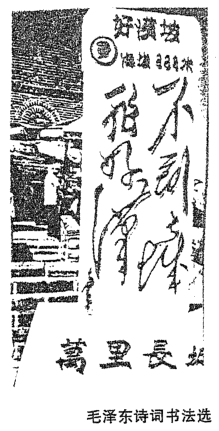 好漢坡
海拔888米
不到长城
非好漢
萬里長
毛泽东诗词书法选